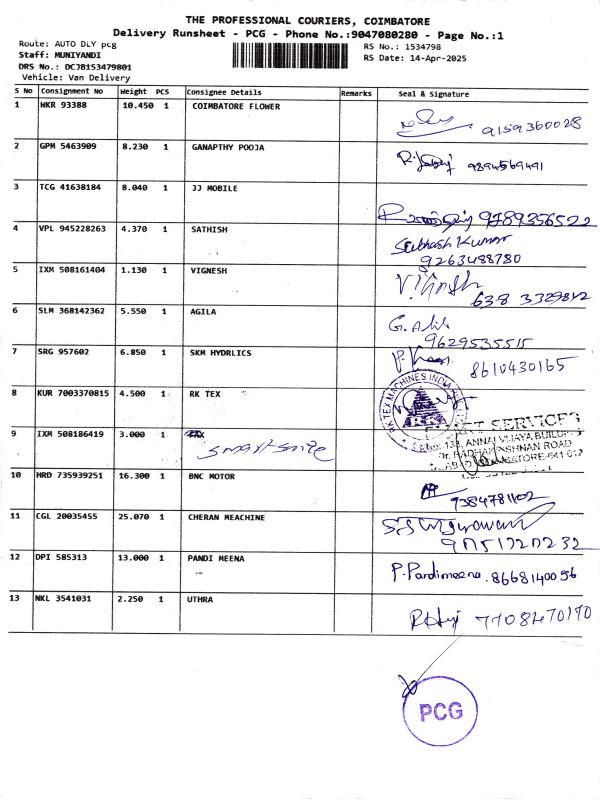 THE PROFESSIONAL COURIERS, COIMBATORE
Delivery Runsheet - PCG - Phone No.:9047080280 - Page No.:1
Route: AUTO DLY pcg
RS No.: 1534798
Staff: MUNIYANDI
RS Date: 14-Apr-2025
DRS No.: DCJB153479801
Vehicle: Van Delivery
S No Consignment No Weight PCS Consignee Details Remarks Seal & Signature
1 WKR 93388 10.450 1 COIMBATORE FLOWER
9159360028
2 GPM 5463909 8.230 1 GANAPTHY POOJA
9894569491
3 TCG 41638184 8.040 1 JJ MOBILE
9789356522
4 VPL 945228263 4.370 1 SATHISH
Subhash Kumar
9263488780
5 IXM 508161404 1.130 1 VIGNESH
V.
6 SLM 368142362 5.550 1 AGILA
G.
9629535515
7 SRG 957602 6.850 1 SKM HYDRLICS
8610430165
8 KUR 7003370815 4.500 1 RK TEX
RK TEX MACHINES INDIA
9 IXM 508186419 3.000 1
SERVICES
ANNAI VIJAYA BUILDI
ROAD
10 HRD 735939251 16.300 1 BNC MOTOR
9384781102
11 CGL 20035455 25.070 1 CHERAN MEACHINE
12 DPI 585313 13.000 1 PANDI MEENA
P. Pandimeena. 8668140056
13 NKL 3541031 2.250 1 UTHRA
7708470170
PCG